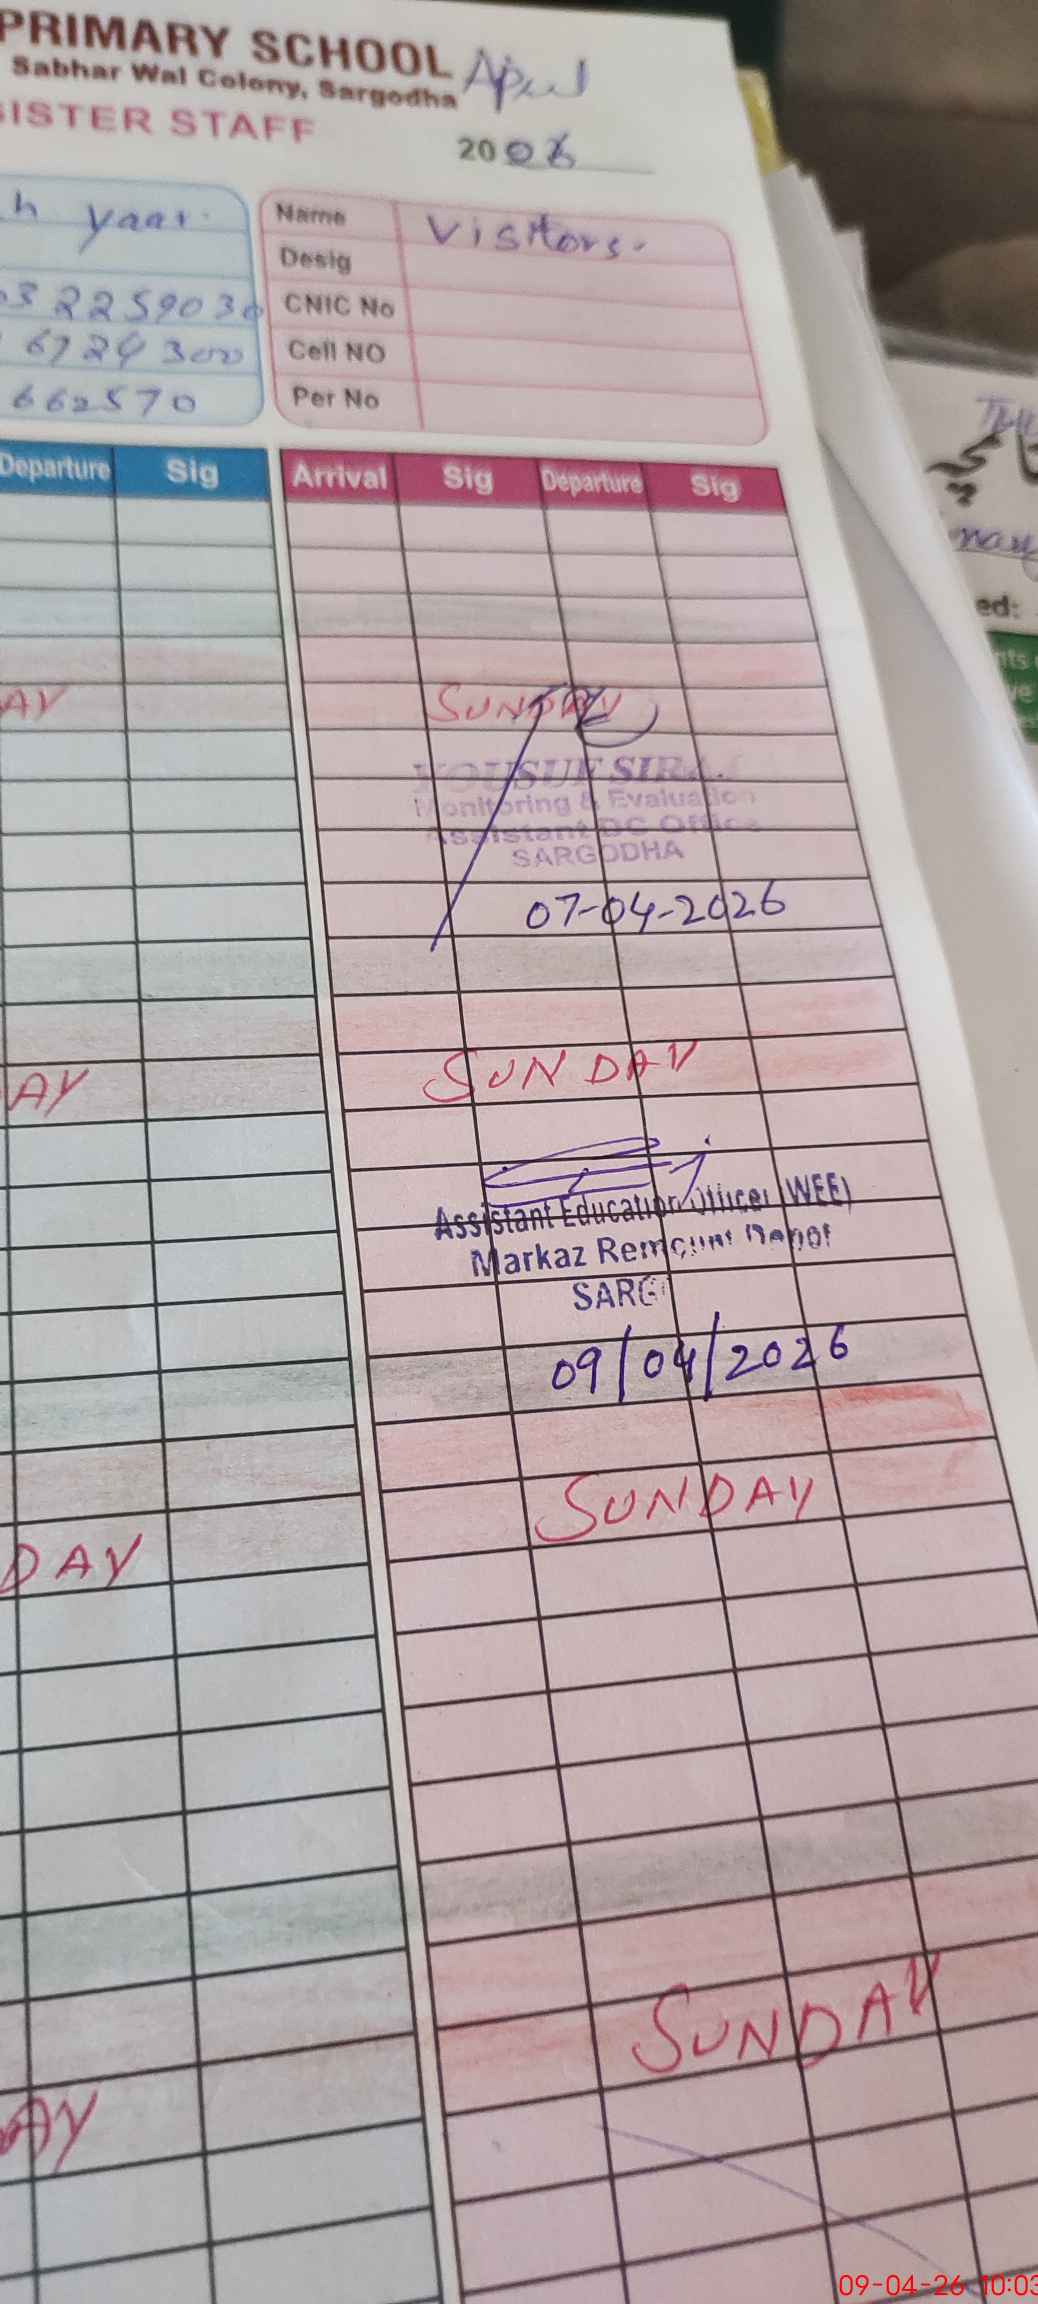 PRIMARY SCHOOL
April
Sabhar Wal Colony, Sargodha
ISTER STAFF
2026
h yaar.
03 2259030
6724300
662570
Name Visitors.
Desig
CNIC No
Cell NO
Per No
Departure Sig Arrival Sig Departure Sig
AY SUNDAY
YOUSUF SIRAJ
Monitoring & Evaluation
Assistant DC Office
SARGODHA
07-04-2026
AY SUNDAY
Assistant Education Officer (WEE)
Markaz Remount Depot
SARG
09/04/2026
DAY SUNDAY
AY SUNDAY
ed:
09-04-26 10:03